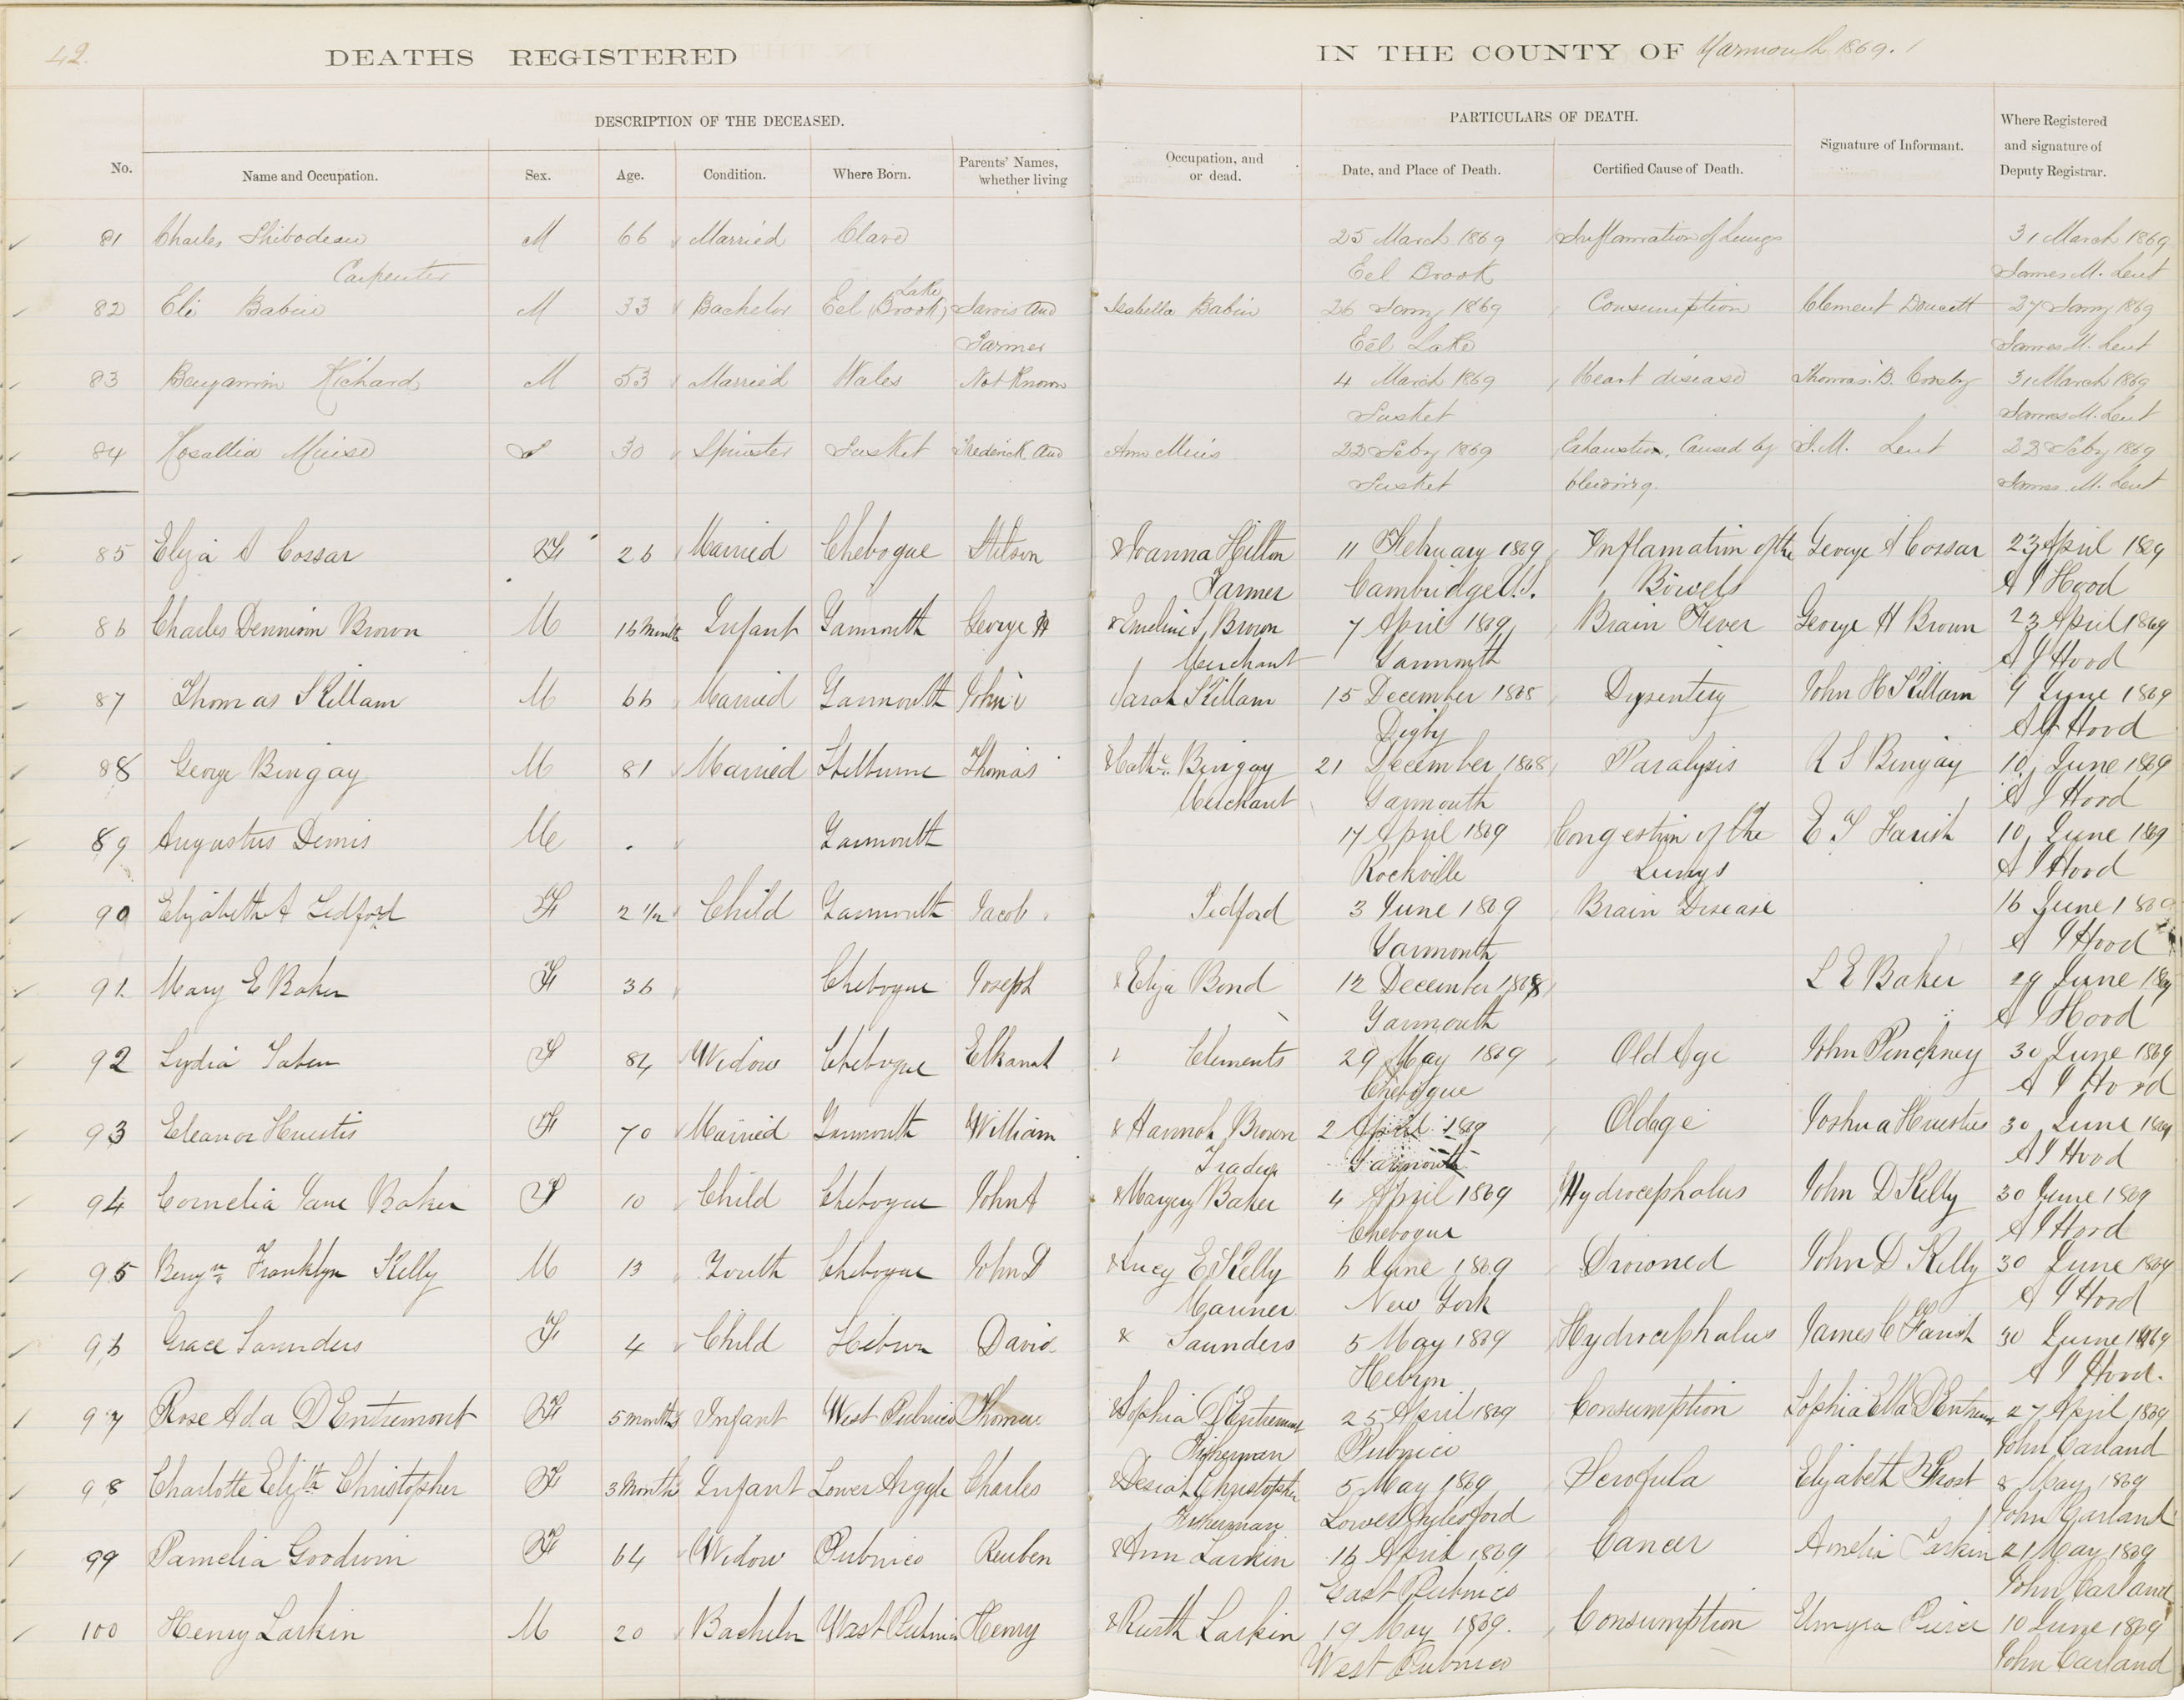 42.
DEATHS REGISTERED IN THE COUNTY OF Yarmouth 1869.
DESCRIPTION OF THE DECEASED. PARTICULARS OF DEATH.
No. Name and Occupation. Sex. Age. Condition. Where Born. Parents' Names, whether living Occupation, and or dead. Date, and Place of Death. Certified Cause of Death. Signature of Informant. Where Registered and signature of Deputy Registrar.
81 Charles Thibodeau M 66 Married Clare 25 March 1869 Inflamation of Lungs 31 March 1869
Carpenter Eel Brook James M. Lent
82 Eli Babin M 33 Bachelor Eel Brook, Lake Jarvis and Isabella Babin 26 Jany 1869 Consumption Clement Doucett 27 Jany 1869
Farmer Eel Lake James M. Lent
83 Benjamin Richard M 53 Married Wales Not Known 4 March 1869 Heart disease Thomas B. Crosby 31 March 1869
Tusket James M. Lent
84 Rosallia Muise F 30 Spinster Tusket Frederick and Ann Muis 22 Feby 1869 Exhaustion, Caused by J. M. Lent 23 Feby 1869
Tusket bleeding. James M. Lent
85 Eliza A Cossar F 26 Married Chebogue Stilson & Joanna Hilton 11 February 1869 Inflamation of the George A Cossar 23 April 1869
Farmer Cambridge U.S. Bowels A J Hood
86 Charles Dennison Brown M 16 Month Infant Yarmouth George H & Emeline J Brown 7 April 1869 Brain Fever George H Brown 23 April 1869
Merchant Yarmouth A J Hood
87 Thomas Killam M 66 Married Yarmouth John & Sarah Killam 15 December 1868 Dysentery John H Killam 9 June 1869
Digby A J Hood
88 George Bingay M 81 Married Shelburne Thomas & Cathe. Bingay 21 December 1868 Paralysis R S Bingay 10 June 1869
Merchant Yarmouth A J Hood
89 Augustus Dennis M Yarmouth 17 April 1869 Congestion of the E F Farish 10 June 1869
Rockville Lungs A J Hood
90 Elizabeth A Tedford F 2 1/2 Child Yarmouth Jacob Tedford 3 June 1869 Brain Disease 16 June 1869
Yarmouth A J Hood
91. Mary E Baker F 36 Chebogue Joseph & Eliza Bond 12 December 1868 L E Baker 29 June 1869
Yarmouth A J Hood
92 Lydia Taber F 84 Widow Chebogue Elkanah Clements 29 May 1869 Old Age John Pinckney 30 June 1869
Chebogue A J Hood
93 Eleanor Huestis F 70 Married Yarmouth William & Hannah Brown 2 April 1869 Oldage Joshua Huestis 30 June 1869
Trader Yarmouth A J Hood
94 Cornelia Jane Baker F 10 Child Chebogue John A & Margery Baker 4 April 1869 Hydrocephalus John D Kelly 30 June 1869
Chebogue A J Hood
95 Benjn. Franklyn Kelly M 13 Youth Chebogue John D & Lucy E Kelly 6 June 1869 Drowned John D Kelly 30 June 1869
Mariner New York A J Hood
96 Grace Saunders F 4 Child Hebron David & Saunders 5 May 1869 Hydrocephalus James C Farish 30 June 1869
Hebron A J Hood.
97 Rose Ada D'Entremont F 5 months Infant West Pubnico Thomas & Sophia D'Entremont 25 April 1869 Consumption Sophia Ella D'Entremont 27 April 1869
Fisherman Pubnico John Carland
98 Charlotte Elizth Christopher F 3 Months Infant Lower Argyle Charles & Desiah Christopher 5 May 1869 Scrofula Elizabeth Frost 8 May 1869
Fisherman Lower John Carland
99 Pamelia Goodwin F 64 Widow Pubnico Reuben & Ann Larkin 16 April 1869 Cancer Amelia Larkin 21 May 1869
East Pubnico John Carland
100 Henry Larkin M 20 Bachelor West Pubnico Henry & Ruth Larkin 19 May 1869. Consumption Elmyra Pierce 10 June 1869
West Pubnico John Carland